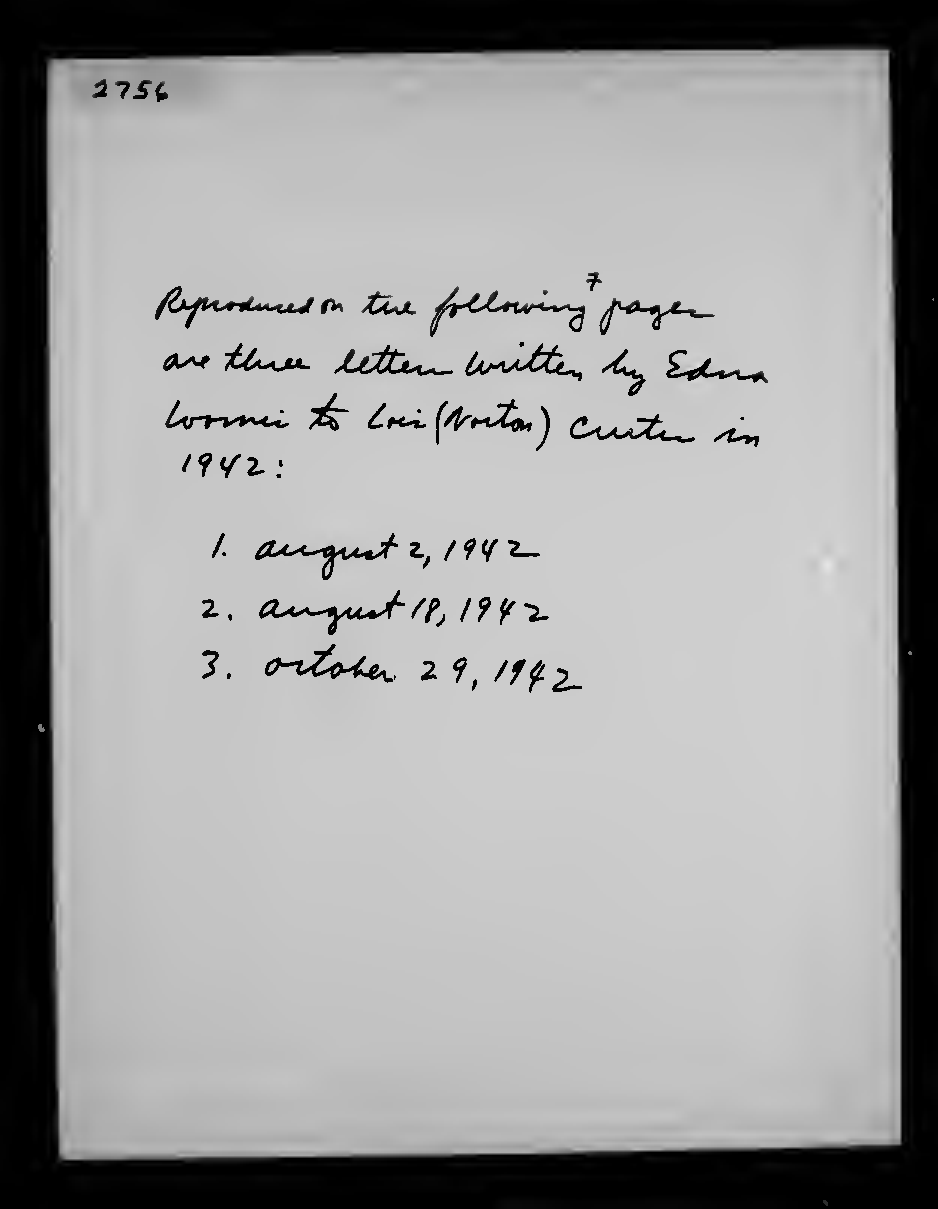 2756
Reproduced on the following 7 pages
are three letters written by Edna
Loomis to Lois (Norton) Custer in
1942:
1. August 2, 1942
2. August 18, 1942
3. October 29, 1942